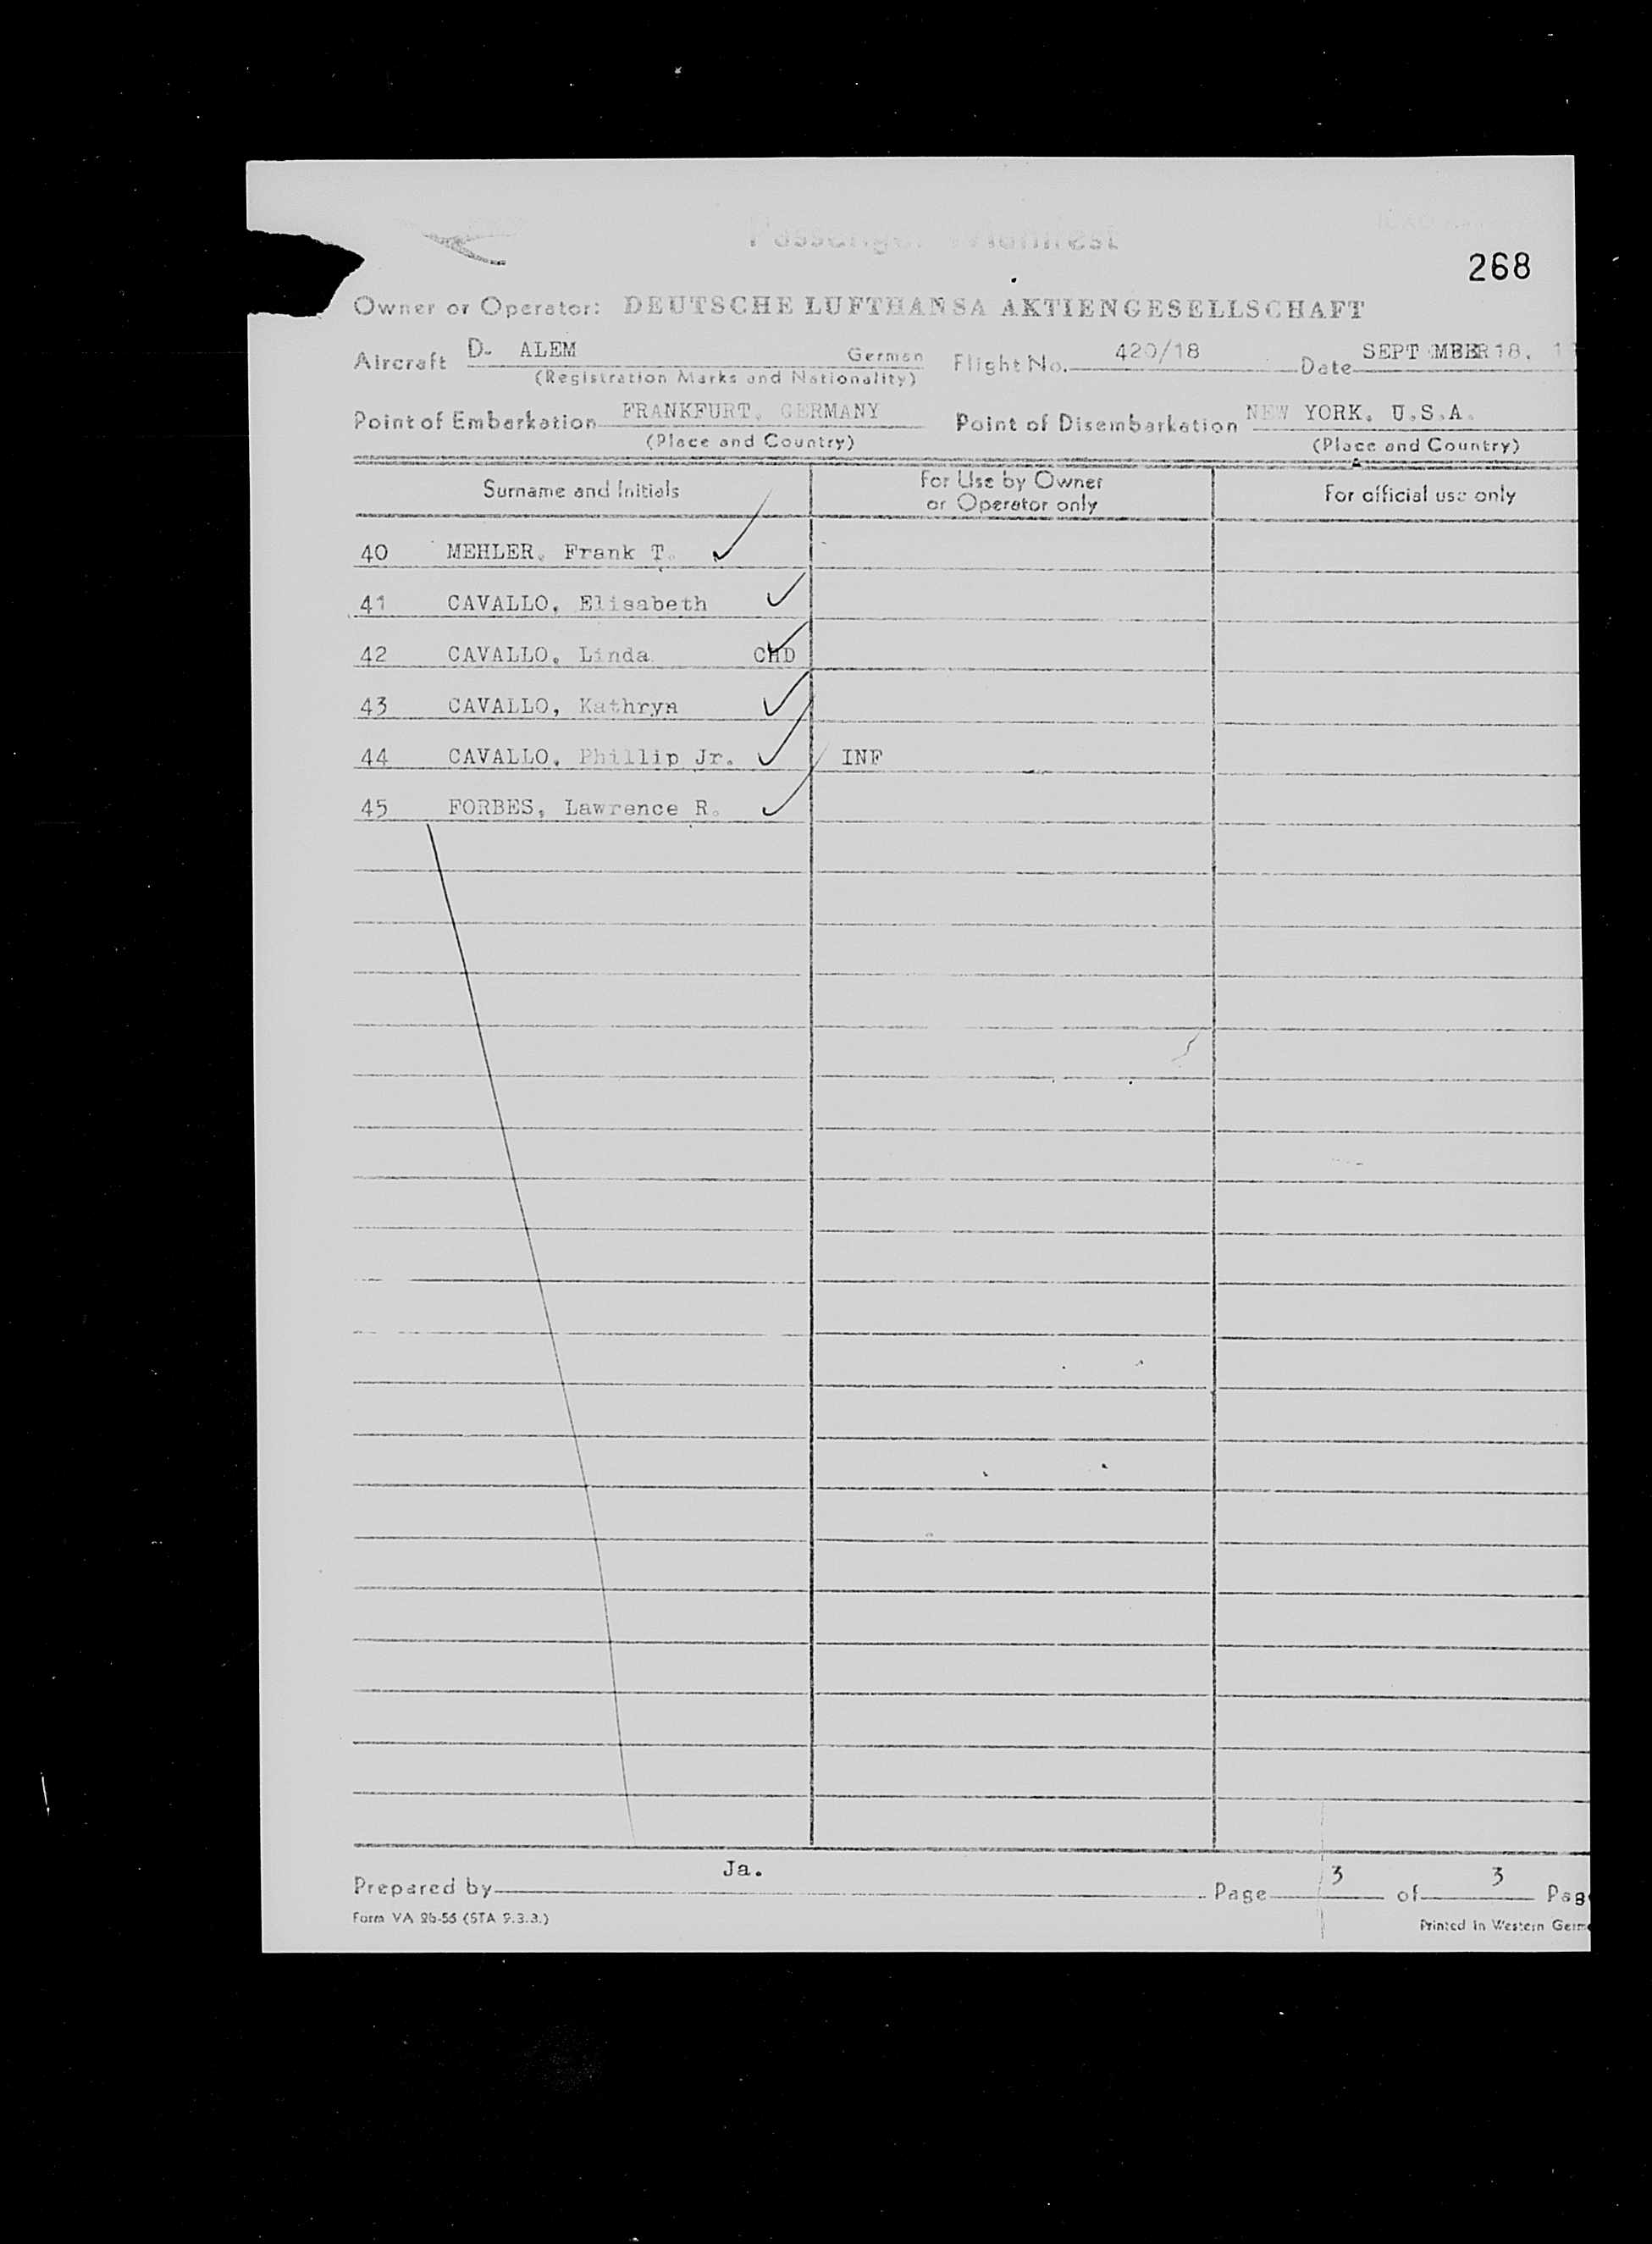 Passenger Manifest
268
Owner or Operator: DEUTSCHE LUFTHANSA AKTIENGESELLSCHAFT
Aircraft D- ALEM German Flight No. 420/18 Date SEPT MBER 18, 1
(Registration Marks and Nationality)
Point of Embarkation FRANKFURT, GERMANY Point of Disembarkation NEW YORK, U.S.A.
(Place and Country) (Place and Country)
Surname and Initials For Use by Owner or Operator only For official use only
40 MEHLER, Frank T.
41 CAVALLO, Elisabeth
42 CAVALLO, Linda CHD
43 CAVALLO, Kathryn
44 CAVALLO, Phillip Jr. INF
45 FORBES, Lawrence R.
Ja.
Prepared by Page 3 of 3 Pag
Form VA 26-55 (STA 9.3.3.) Printed in Western Germ